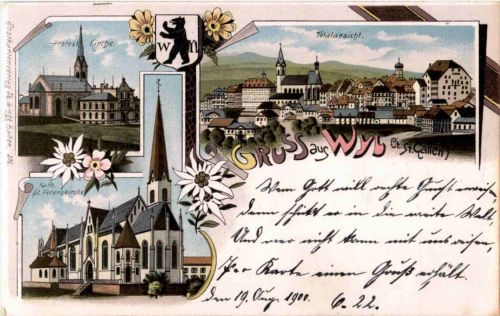 Protest. Kirche
Totalansicht.
W
Gruss aus Wyl
(Ct. St. Gallen)
Kath.
St. Peterskirche
Wem Gott will rechte Gunst erweisen,
denn schickt er in die weite Welt,
Und wer nicht kann mit uns reisen,
Per Karte einen Gruß erhält.
den 19. Aug. 1900. 6.22.